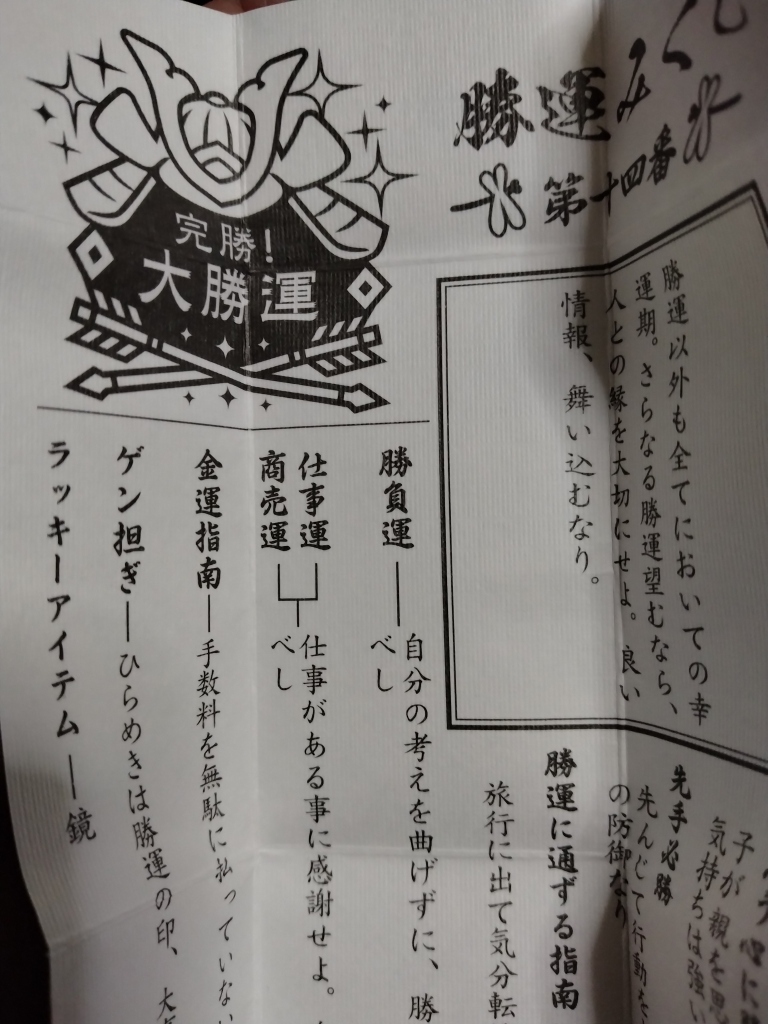 勝運みくじ
第十四番
勝運以外も全てにおいての幸
運期。さらなる勝運望むなら、
人との縁を大切にせよ。良い
情報、舞い込むなり。
完勝!
大勝運
子が親を思
気持ちは強い
先手必勝
先んじて行動を
の防御なり
勝運に通ずる指南
旅行に出て気分転
勝負運 自分の考えを曲げずに、勝
べし
仕事運
商売運
仕事がある事に感謝せよ。
べし
金運指南 手数料を無駄に払っていない
ゲン担ぎ ひらめきは勝運の印、大
ラッキーアイテム 鏡